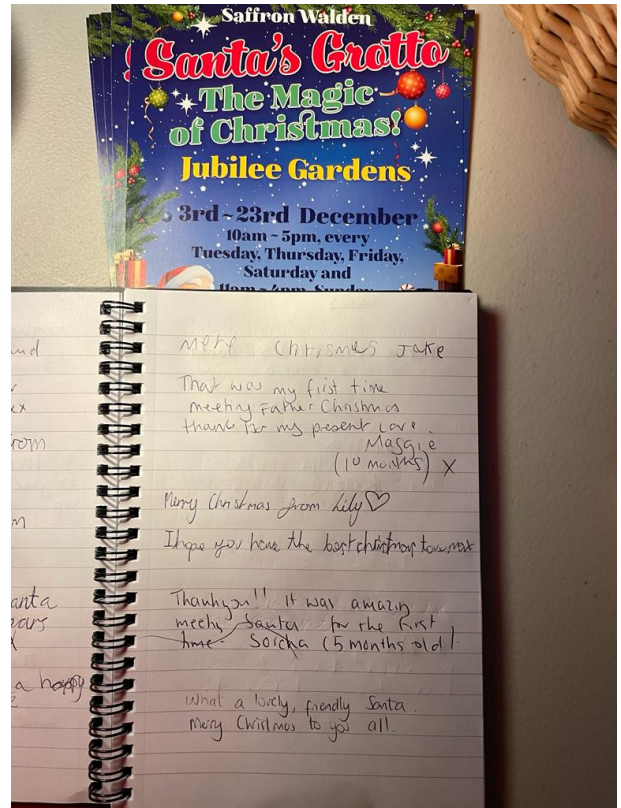 Saffron Walden
Santa's Grotto
The Magic
of Christmas!
Jubilee Gardens
3rd ~ 23rd December
10am ~ 5pm, every
Tuesday, Thursday, Friday,
Saturday and
11am ~ 4pm, Sunday
nd
ex
rom
m
anta
ears
a happy
mere Chrismes Jake
That was my first time
meeting Father Christmas
thanks for my present love.
Maggie
(10 months) X
Merry Christmas from Lily♡
I hope you have the best christmas
Thankyou!! It was amazing
meeting Santa for the first
time - Sorcha (5 months old)
What a lovely, friendly Santa.
Merry Christmas to you all.